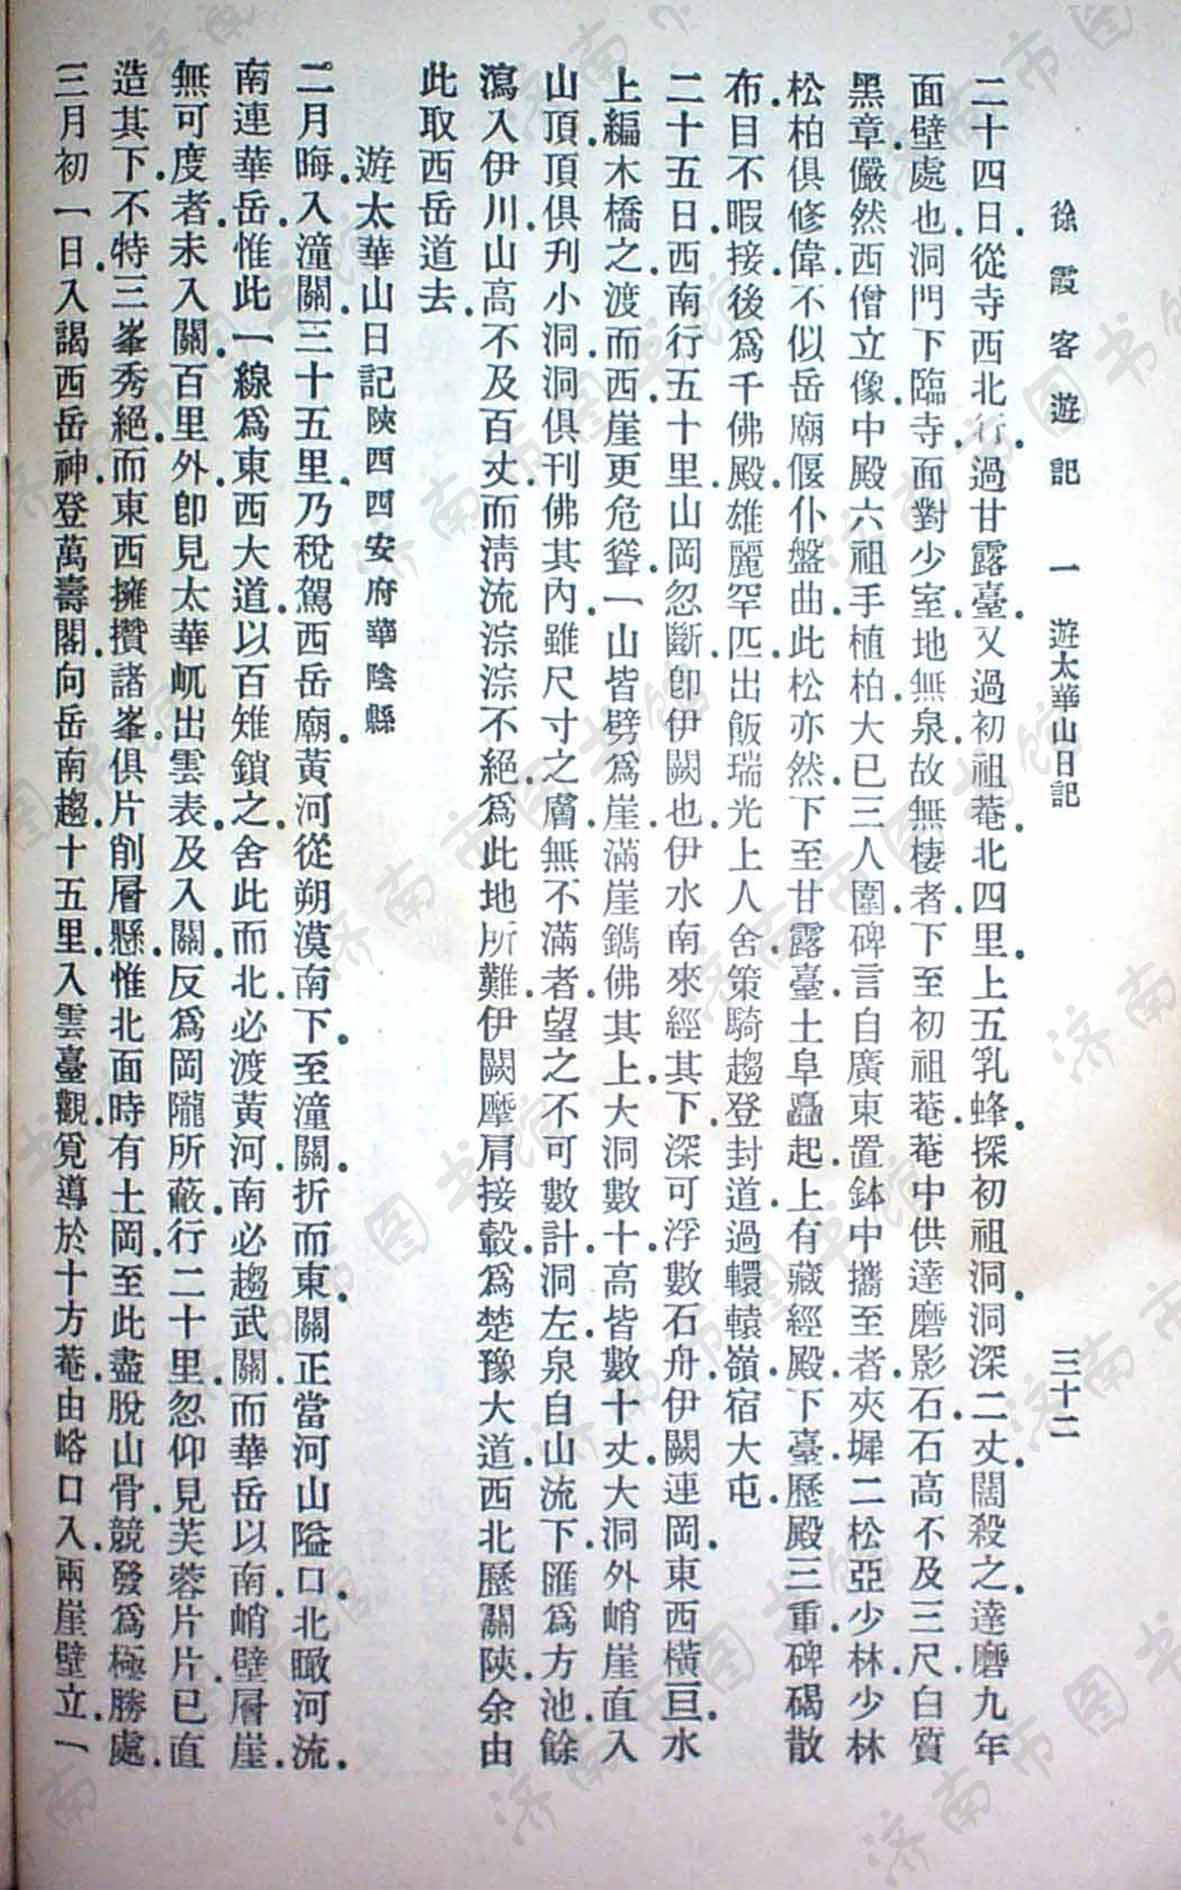 徐霞客遊記 一 遊太華山日記 三十二
二十四日．從寺西北行．過甘露臺．又過初祖菴．北四里．上五乳蜂．探初祖洞．洞深二丈．闊殺之．達磨九年
面壁處也．洞門下臨寺．面對少室．地無泉．故無棲者．下至初祖菴．菴中供達磨影石．石高不及三尺．白質
黑章．儼然西僧立像．中殿六祖手植柏．大已三人圍．碑言自廣東置鉢中攜至者．夾墀二松亞少林．少林
松柏俱修偉．不似岳廟偃仆盤曲．此松亦然．下至甘露臺．土阜矗起．上有藏經殿．下臺歷殿三重．碑碣散
布．目不暇接．後爲千佛殿．雄麗罕匹．出飯瑞光上人舍．策騎趨登封道．過轘轅嶺．宿大屯．
二十五日．西南行五十里．山岡忽斷．卽伊闕也．伊水南來經其下．深可浮數石舟．伊闕連岡．東西橫亘．水
上編木橋之．渡而西．崖更危聳．一山皆劈爲崖．滿崖鐫佛其上．大洞數十．高皆數十丈．大洞外峭崖直入
山頂．頂俱刋小洞．洞俱刊佛其內．雖尺寸之膚．無不滿者．望之不可數計．洞左．泉自山流下．匯爲方池．餘
瀉入伊川．山高不及百丈．而淸流淙淙不絕．爲此地所難．伊闕摩肩接轂．爲楚豫大道．西北歷關陝．余由
此取西岳道去．
遊太華山日記 陝西四安府華陰縣
二月晦．入潼關．三十五里．乃稅駕西岳廟．黃河從朔漠南下．至潼關．折而東．關正當河山隘口．北瞰河流．
南連華岳．惟此一線爲東西大道．以百雉鎖之．舍此而北．必渡黃河．南必趨武關．而華岳以南．峭壁層崖．
無可度者．未入關．百里外卽見太華屼出雲表．及入關．反爲岡隴所蔽．行二十里．忽仰見芙蓉片片．已直
造其下．不特三峯秀絕．而東西擁攢諸峯．俱片削層懸．惟北面時有土岡．至此盡脫山骨．競發爲極勝處．
三月初一日．入謁西岳神．登萬壽閣．向岳南趨十五里．入雲臺觀．覓導於十方菴．由峪口入．兩崖壁立．一